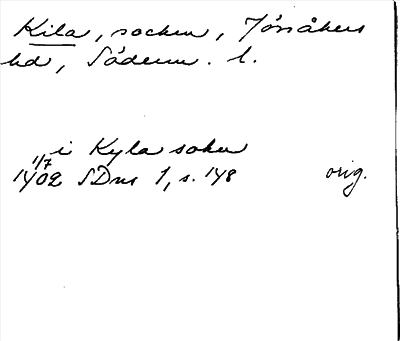 Kila, socken, Jönåkers
hd, Söderm. l.
i Kyla soken
1/7
1402 SDns 1, s. 148 orig.